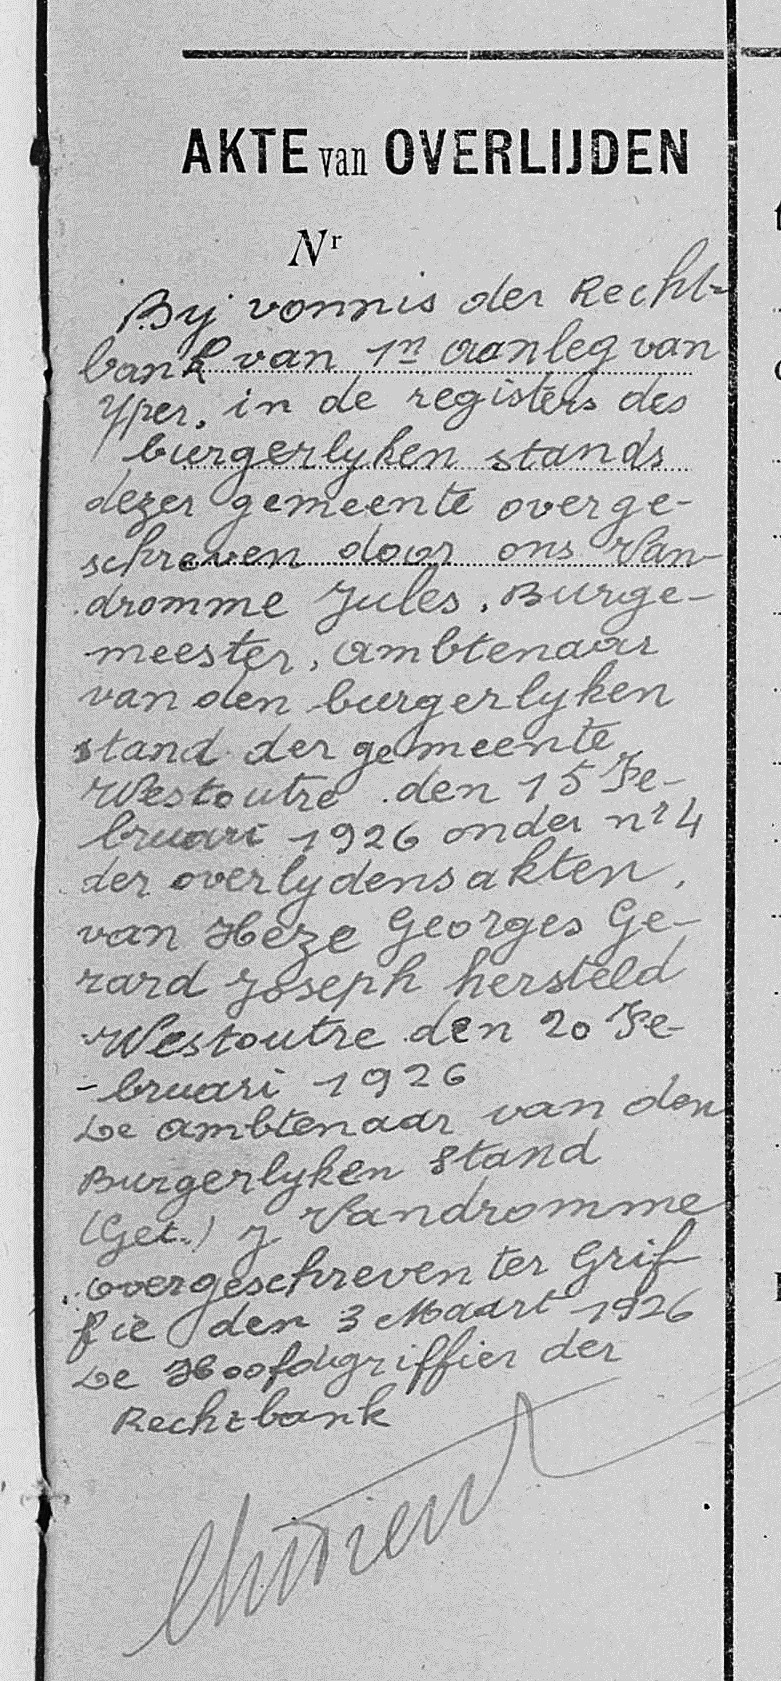 AKTE van OVERLIJDEN
Nr
Bij vonnis der Recht-
bank van 1n aanleg van
Yper, in de registers des
burgerlyken stands
dezer gemeente overge-
schreven door ons Van-
dromme Jules, Burge-
meester, ambtenaar
van den burgerlyken
stand der gemeente
Westoutre den 15 Fe-
bruari 1926 onder nr 4
der overlydensakten,
van Heze Georges Ge-
rard Joseph hersteld
Westoutre den 20 Fe-
-bruari 1926
De ambtenaar van den
Burgerlyken Stand
(Get.) J Vandromme
overgeschreven ter Grif-
fie den 3 Maart 1926
De Hoofdgriffier der
Rechtbank